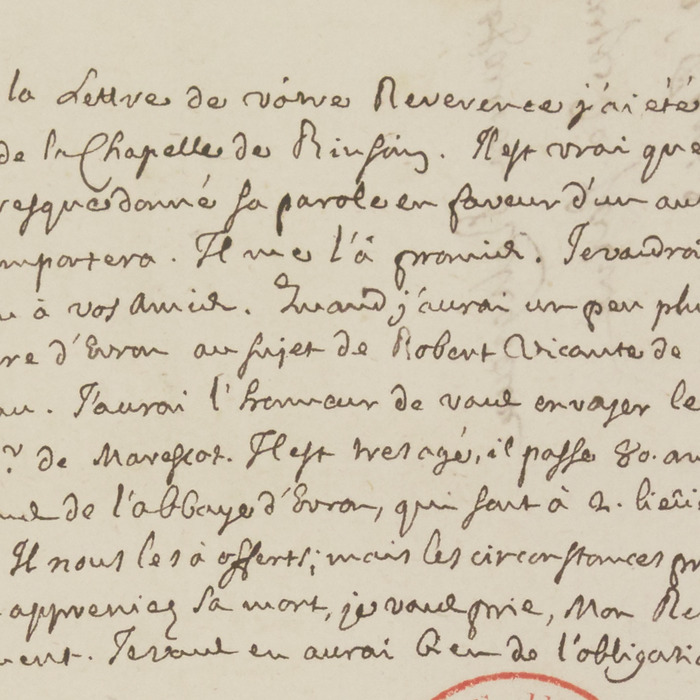 la Lettre de vôtre Reverence j'ai été
de la Chapelle de Rinsoin. Il est vrai que
resque donné sa parole en faveur d'un au
mportera. Il me l'â promis. Je voudrai
u à vos Amis. Quand j'aurai un peu plu
re d'Evron au sujet de Robert Vicomte de
au. J'aurai l'honneur de vous envoyer le
r de Marescot. Il est tres agé, il passe 80. an
de l'abbaye d'Evron, qui sont à 2.
Il nous les à offerts; mais les circonstances pr
appreniez sa mort, je vous prie, Mon Re
ment. Je vous en aurai bien de l'obligatio